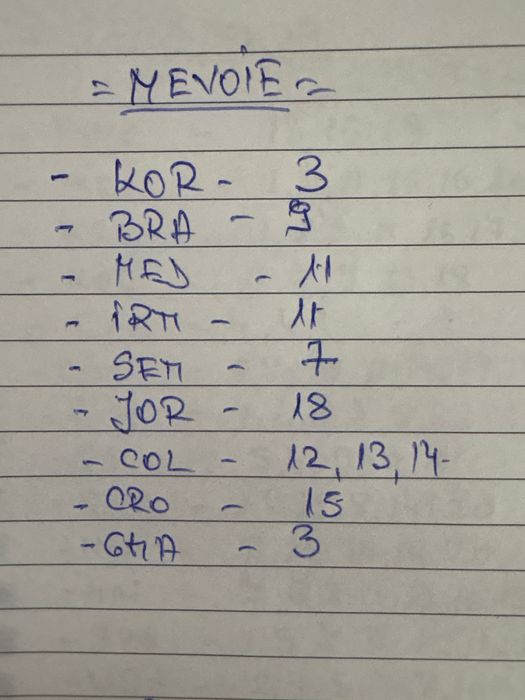 = MEVOIE =
- KOR - 3
- BRA - 9
- MEJ - 11
- IRM - 11
- SEM - 7
- JOR - 18
- COL - 12, 13, 14
- CRO - 15
- GHA - 3